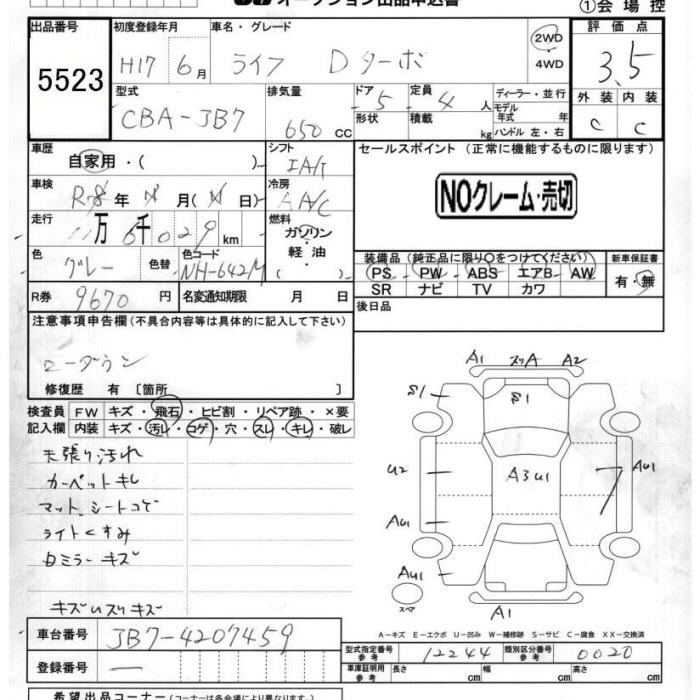 オークション出品申込書
①会場控
出品番号 5523
初度登録年月 H17 6月
車名・グレード ライフ Dターボ
2WD
4WD
評価点 3.5
型式 CBA-JB7
排気量 650 CC
ドア 5
形状
定員 4 人
積載 kg
ディーラー・並行
モデル年式 年
ハンドル 左・右
外装 C
内装 C
車歴 自家用・( )
シフト IAT
セールスポイント (正常に機能するものに限ります)
車検 年 月( )
冷房 AAC
NOクレーム・売切
走行 11万6千029km
燃料 ガソリン・軽油・( )
色 グレー
色替
色コード NH-642M
装備品 (純正品に限り○をつけてください)
新車保証書 有・無
PS PW ABS エアB AW
SR ナビ TV カワ
R券 9670円
名変通知期限 月 日
後日品
注意事項申告欄 (不具合内容等は具体的に記入して下さい)
ローダウン
修復歴 有 [箇所 ]
検査員記入欄
FW キズ・飛石・ヒビ割・リペア跡・×要
内装 キズ・汚レ・コゲ・穴・スレ・キレ・破レ
天張り汚れ
カーペットキレ
マット、シートコゲ
ライトくすみ
Dミラーキズ
キズいスリキズ
A1 スリA A2
S1 S1
U2 A3U1 AU1
AU1
AU1
スペア
A1
A-キズ E-エクボ U-凹み W-補修跡 S-サビ C-腐食 XX-交換済
車台番号 JB7-4207459
型式指定番号 参考 12244
類別区分番号 参考 0020
登録番号 —
車庫証明用 参考 長さ cm 幅 cm 高さ cm
希望出品コーナー (コーナーは各会場により異なります。)